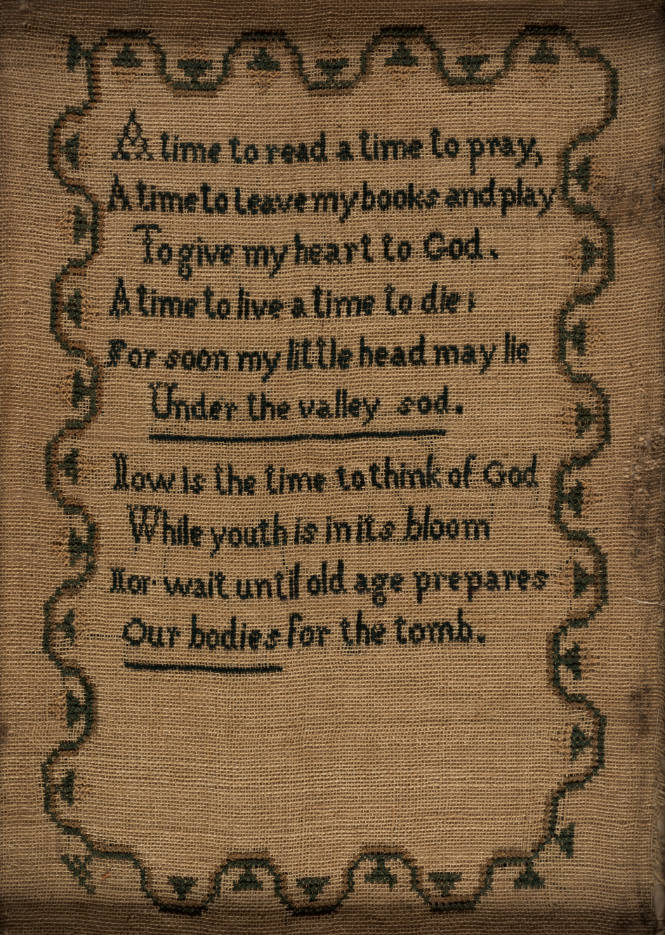 A time to read a time to pray,
A time to Leave my books and play
To give my heart to God.
A time to live a time to die:
For soon my little head may lie
Under the valley sod.
Now is the time to think of God
While youth is in its bloom
Nor wait until old age prepares
Our bodies for the tomb.